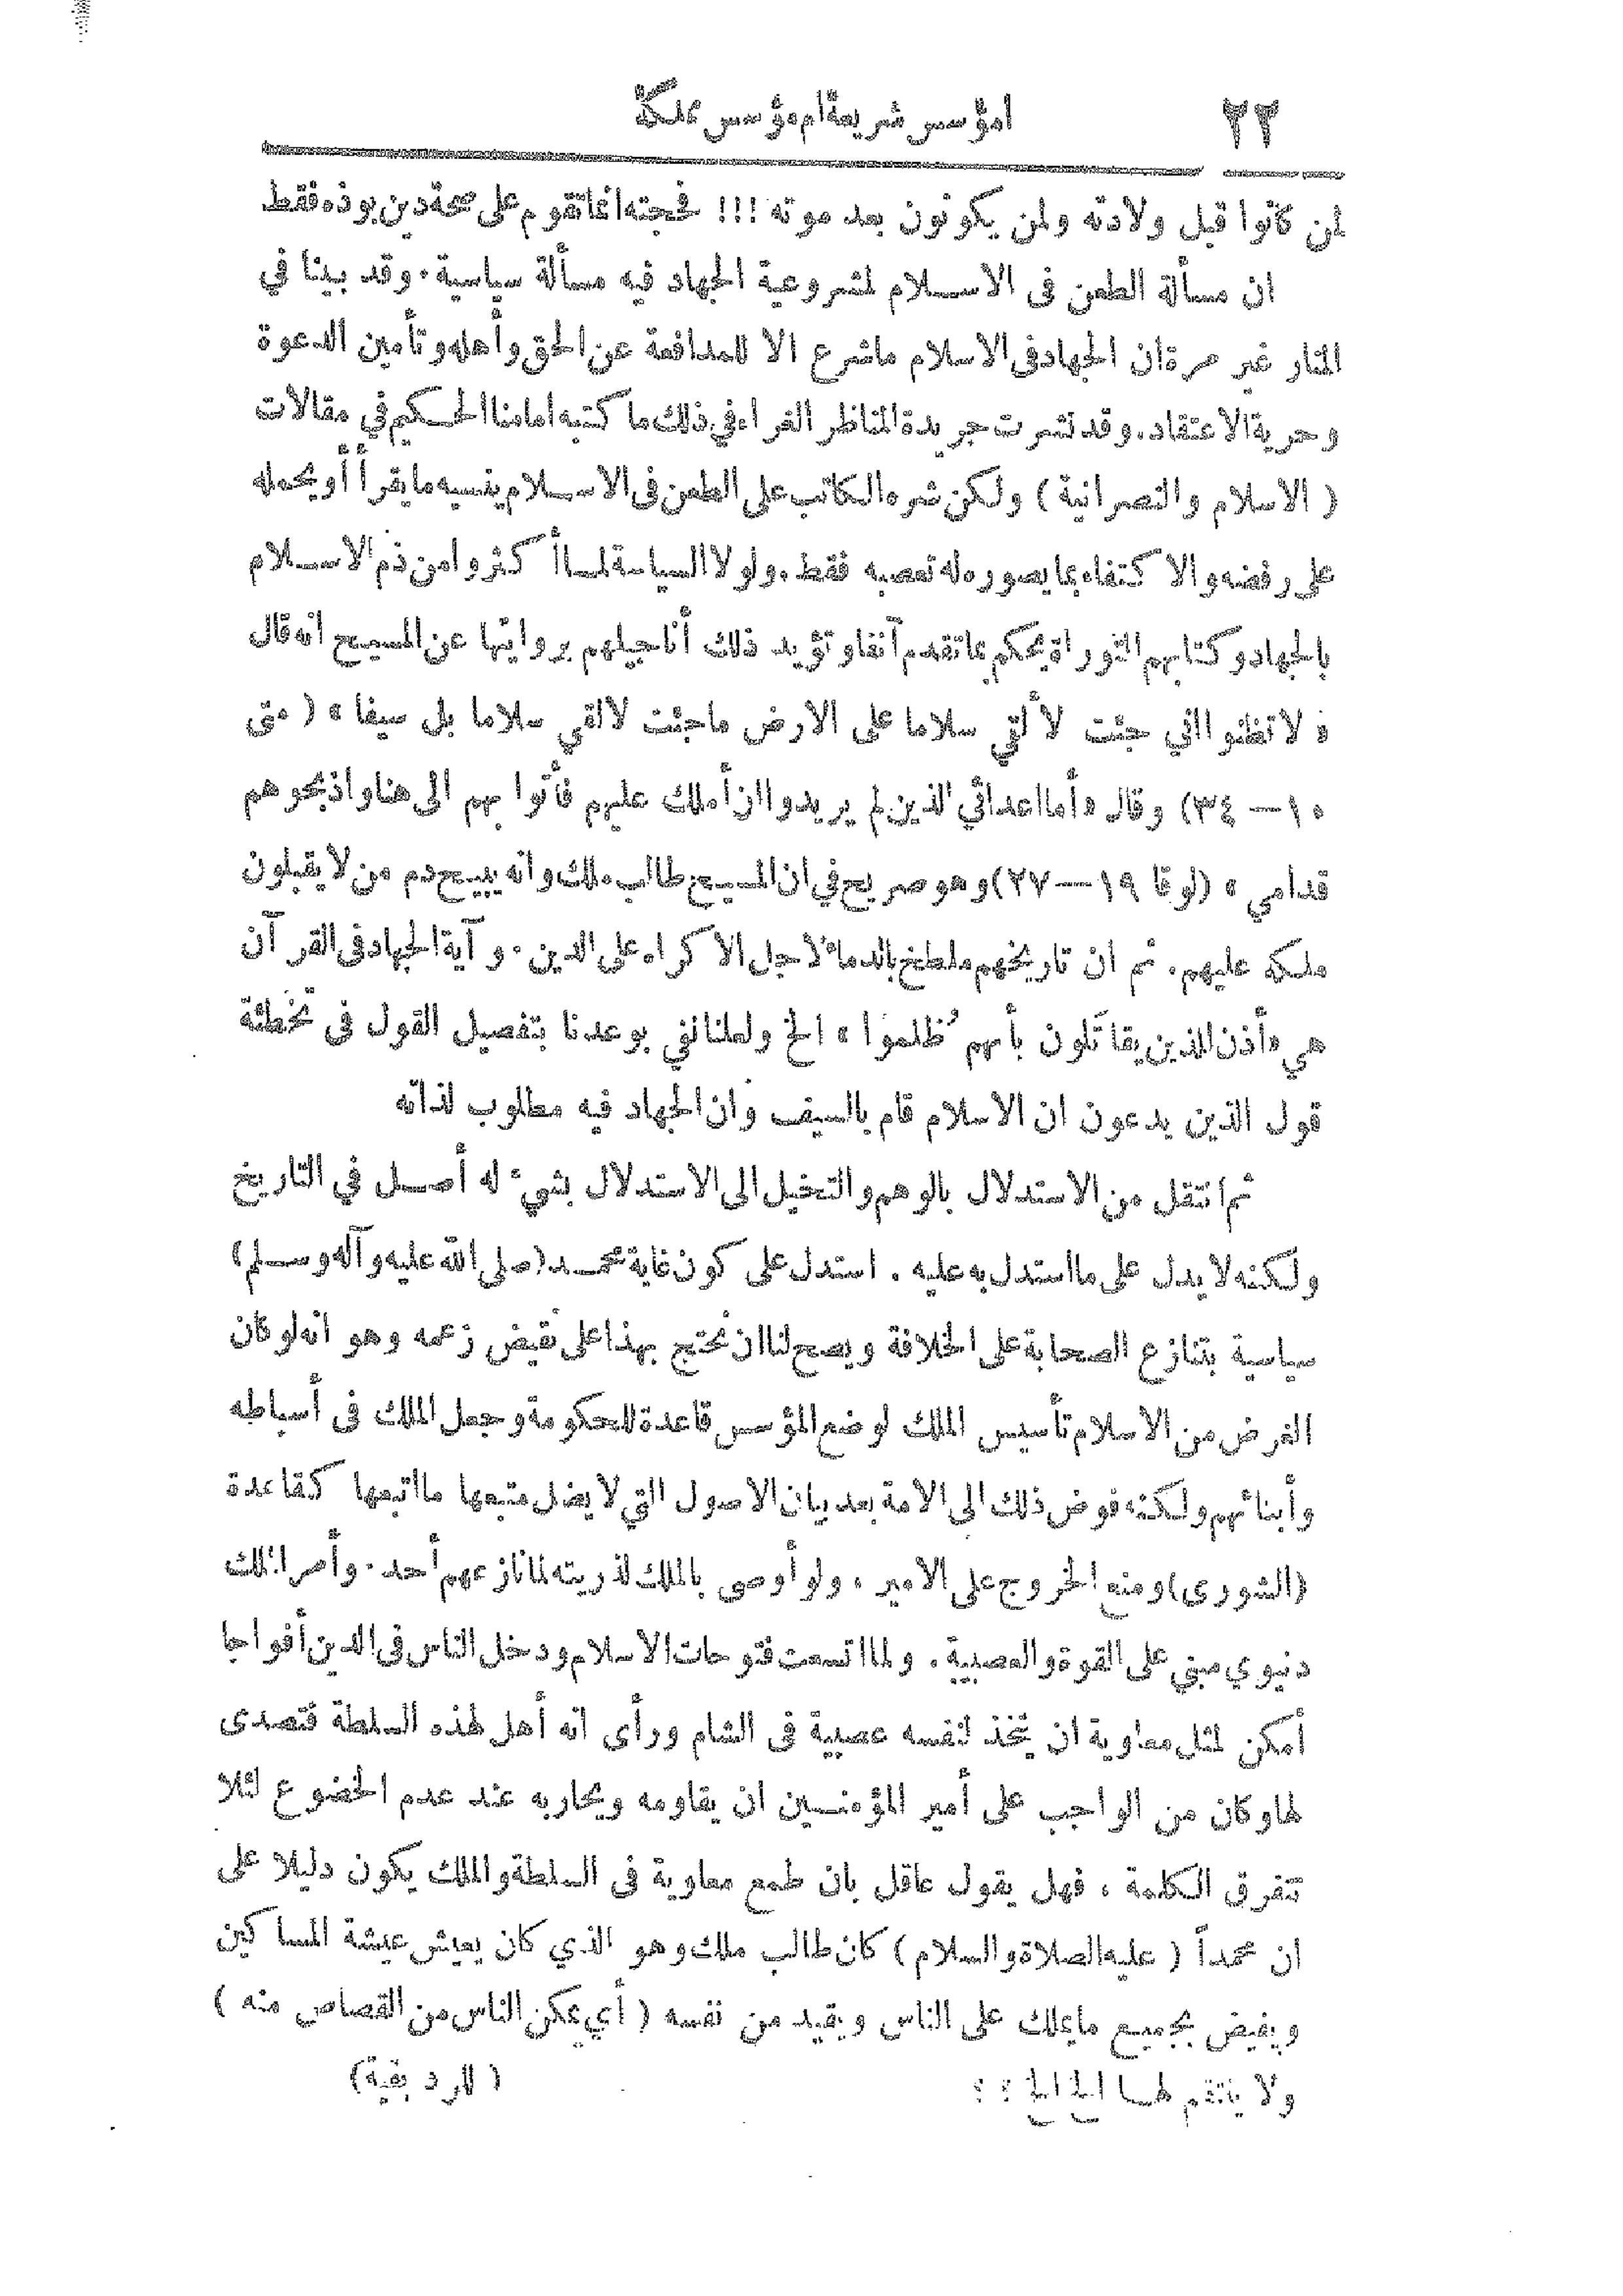 ٢٢ امؤسس شريعة أم مؤسس مملكة
لمن كانوا قبل ولادته ولمن يكونون بعد موته !!! فحجته انما تقوم على صحة دين بوذه فقط
ان مسألة الطعن فى الاسلام لمشروعية الجهاد فيه مسألة سياسية . وقد بينا في
المنار غير مرة ان الجهاد فى الاسلام ما شرع الا للمدافعة عن الحق وأهله وتأمين الدعوة
وحرية الاعتقاد . وقد نشرت جريدة المناظر الغراء في ذلك ما كتبه امامنا الحكيم في مقالات
( الاسلام والنصرانية ) ولكن شره الكاتب على الطعن فى الاسلام ينسيه ما يقرأ أو يحمله
على رفضه والاكتفاء بما يصوره له تعصبه فقط . ولولا السياسة لما أكثروا من ذم الاسلام
بالجهاد وكتابهم التوراة يحكم بما تقدم آنفا وتؤيد ذلك أناجيلهم بروايتها عن المسيح انه قال
« لا تظنوا اني جئت لألقي سلاما على الارض ما جئت لالقي سلاما بل سيفا » ( متى
١٠ — ٣٤) وقال « أما اعدائي الذين لم يريدوا ان أملك عليهم فأتوا بهم الى هنا واذبحوهم
قدامي » (لوقا ١٩—٢٧) وهو صريح في ان المسيح طالب ملك وانه يبيح دم من لا يقبلون
ملكه عليهم . ثم ان تاريخهم ملطخ بالدماء لاجل الاكراه على الدين . وآية الجهاد فى القرآن
هي « أذن للذين يقاتَلون بأنهم ظُلموا » الخ ولعلنا نفي بوعدنا بتفصيل القول فى تخطئة
قول الذين يدعون ان الاسلام قام بالسيف وان الجهاد فيه مطلوب لذاته
ثم انتقل من الاستدلال بالوهم والتخيل الى الاستدلال بشيء له أصل في التاريخ
ولكنه لا يدل على ما استدل به عليه . استدل على كون غاية محمد (صلى الله عليه وآله وسلم)
سياسية بتنازع الصحابة على الخلافة ويصح لنا ان نحتج بهذا على نقيض زعمه وهو انه لو كان
الغرض من الاسلام تأسيس الملك لوضع المؤسس قاعدة للحكومة وجعل الملك فى أسباطه
وأبنائهم ولكنه فوض ذلك الى الامة بعد بيان الاصول التي لا يضل متبعها ما اتبعها كقاعدة
(الشورى) ومنع الخروج على الامير ، ولو أوصى بالملك لذريته لما نازعهم أحد . وأمر الملك
دنيوي مبني على القوة والعصبية . ولما اتسعت فتوحات الاسلام ودخل الناس فى الدين أفواجا
أمكن لمثل معاوية ان يتخذ لنفسه عصبية فى الشام ورأى انه أهل لهذه السلطة فتصدى
لها وكان من الواجب على أمير المؤمنين ان يقاومه ويحاربه عند عدم الخضوع لئلا
تتفرق الكلمة ، فهل يقول عاقل بان طمع معاوية فى السلطة والملك يكون دليلا على
ان محمداً ( عليه الصلاة والسلام ) كان طالب ملك وهو الذي كان يعيش عيشة المساكين
ويفيض بجميع ما يملك على الناس ويقيد من نفسه ( أي يمكن الناس من القصاص منه )
ولا ينتقم لها الخ الخ ؛ ؛ ( للرد بقية)